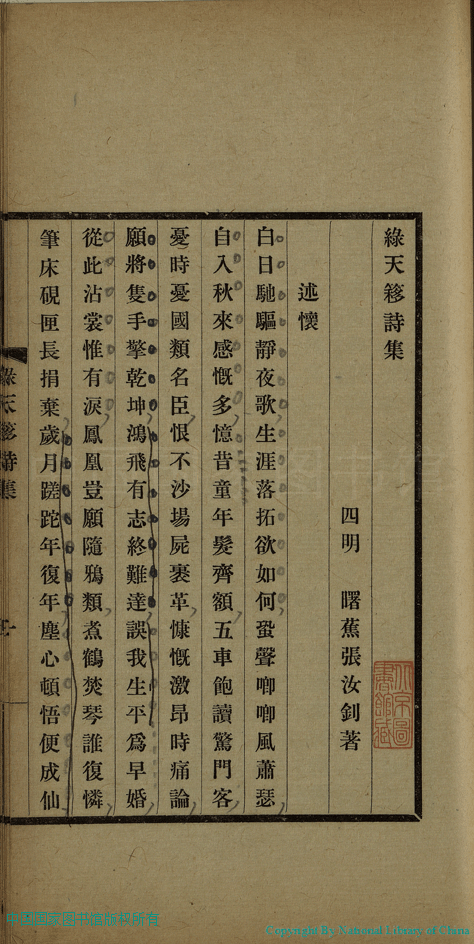 綠天簃詩集
四明　曙蕉張汝釗著
述懷
白日馳驅靜夜歌生涯落拓欲如何蛩聲唧唧風蕭瑟
自入秋來感慨多憶昔童年髮齊額五車飽讀驚門客
憂時憂國類名臣恨不沙場屍裹革慷慨激昂時痛論
願將隻手擎乾坤鴻飛有志終難達誤我生平為早婚
從此沾裳惟有淚鳳凰豈願隨鴉類煮鶴焚琴誰復憐
筆床硯匣長捐棄歲月蹉跎年復年塵心頓悟便成仙
綠天簃詩集
中国国家图书馆版权所有
Copyright By National Library of China